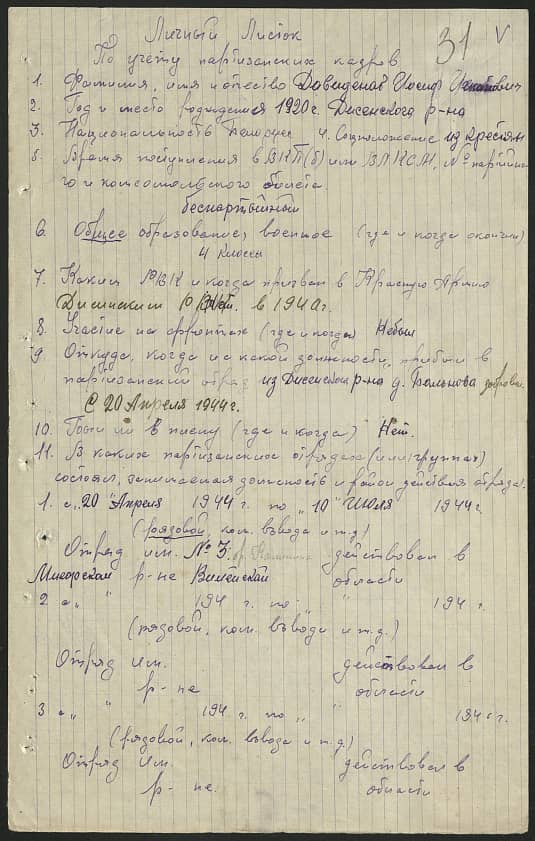 Личный Листок
31 V
По учёту партизанских кадров
1. Фамилия, имя и отчество Давиденок Иосиф
2. Год и место рождения 1920 г. Дисенского р-на
3. Национальность Белорус 4. Соцположение из крестян
5. Время поступления в ВКП(б) или ВЛКСМ, № партийно
го и комсомольского билета.
беспартыйный
6. Общее образование, военное (где и когда окончил)
4 классы
7. Каким РВК и когда призван в Красную Армию
Дисинским в 1940 г.
8. Участие на фронтах (где и когда) Небыл
9. Откуда, когда и с какой должности прибыл в
партизанский отряд из Дисенского р-на д.
С 20 Апреля 1944 г.
10. Был ли в плену (где и когда) Нет.
11. В каких партизанских отрядах (или группах)
состоял, занимаемая должность и район действия отряда.
1. с „20" Апреля 1944 г. по „10" Июля 1944 г.
(рядовой, ком. взвода и т.д.)
Отряд им. № 3 действовал в
Миорском р-не Вилейской области
2 с „ " 194 г. по „ " 194 г.
(рядовой, ком. взвода и т.д.)
Отряд им. действовал в
" р-не области
3 с „ " 194 г. по „ " 194 г.
(рядовой, ком. взвода и т.д.)
Отряд им. действовал в
р-не. области